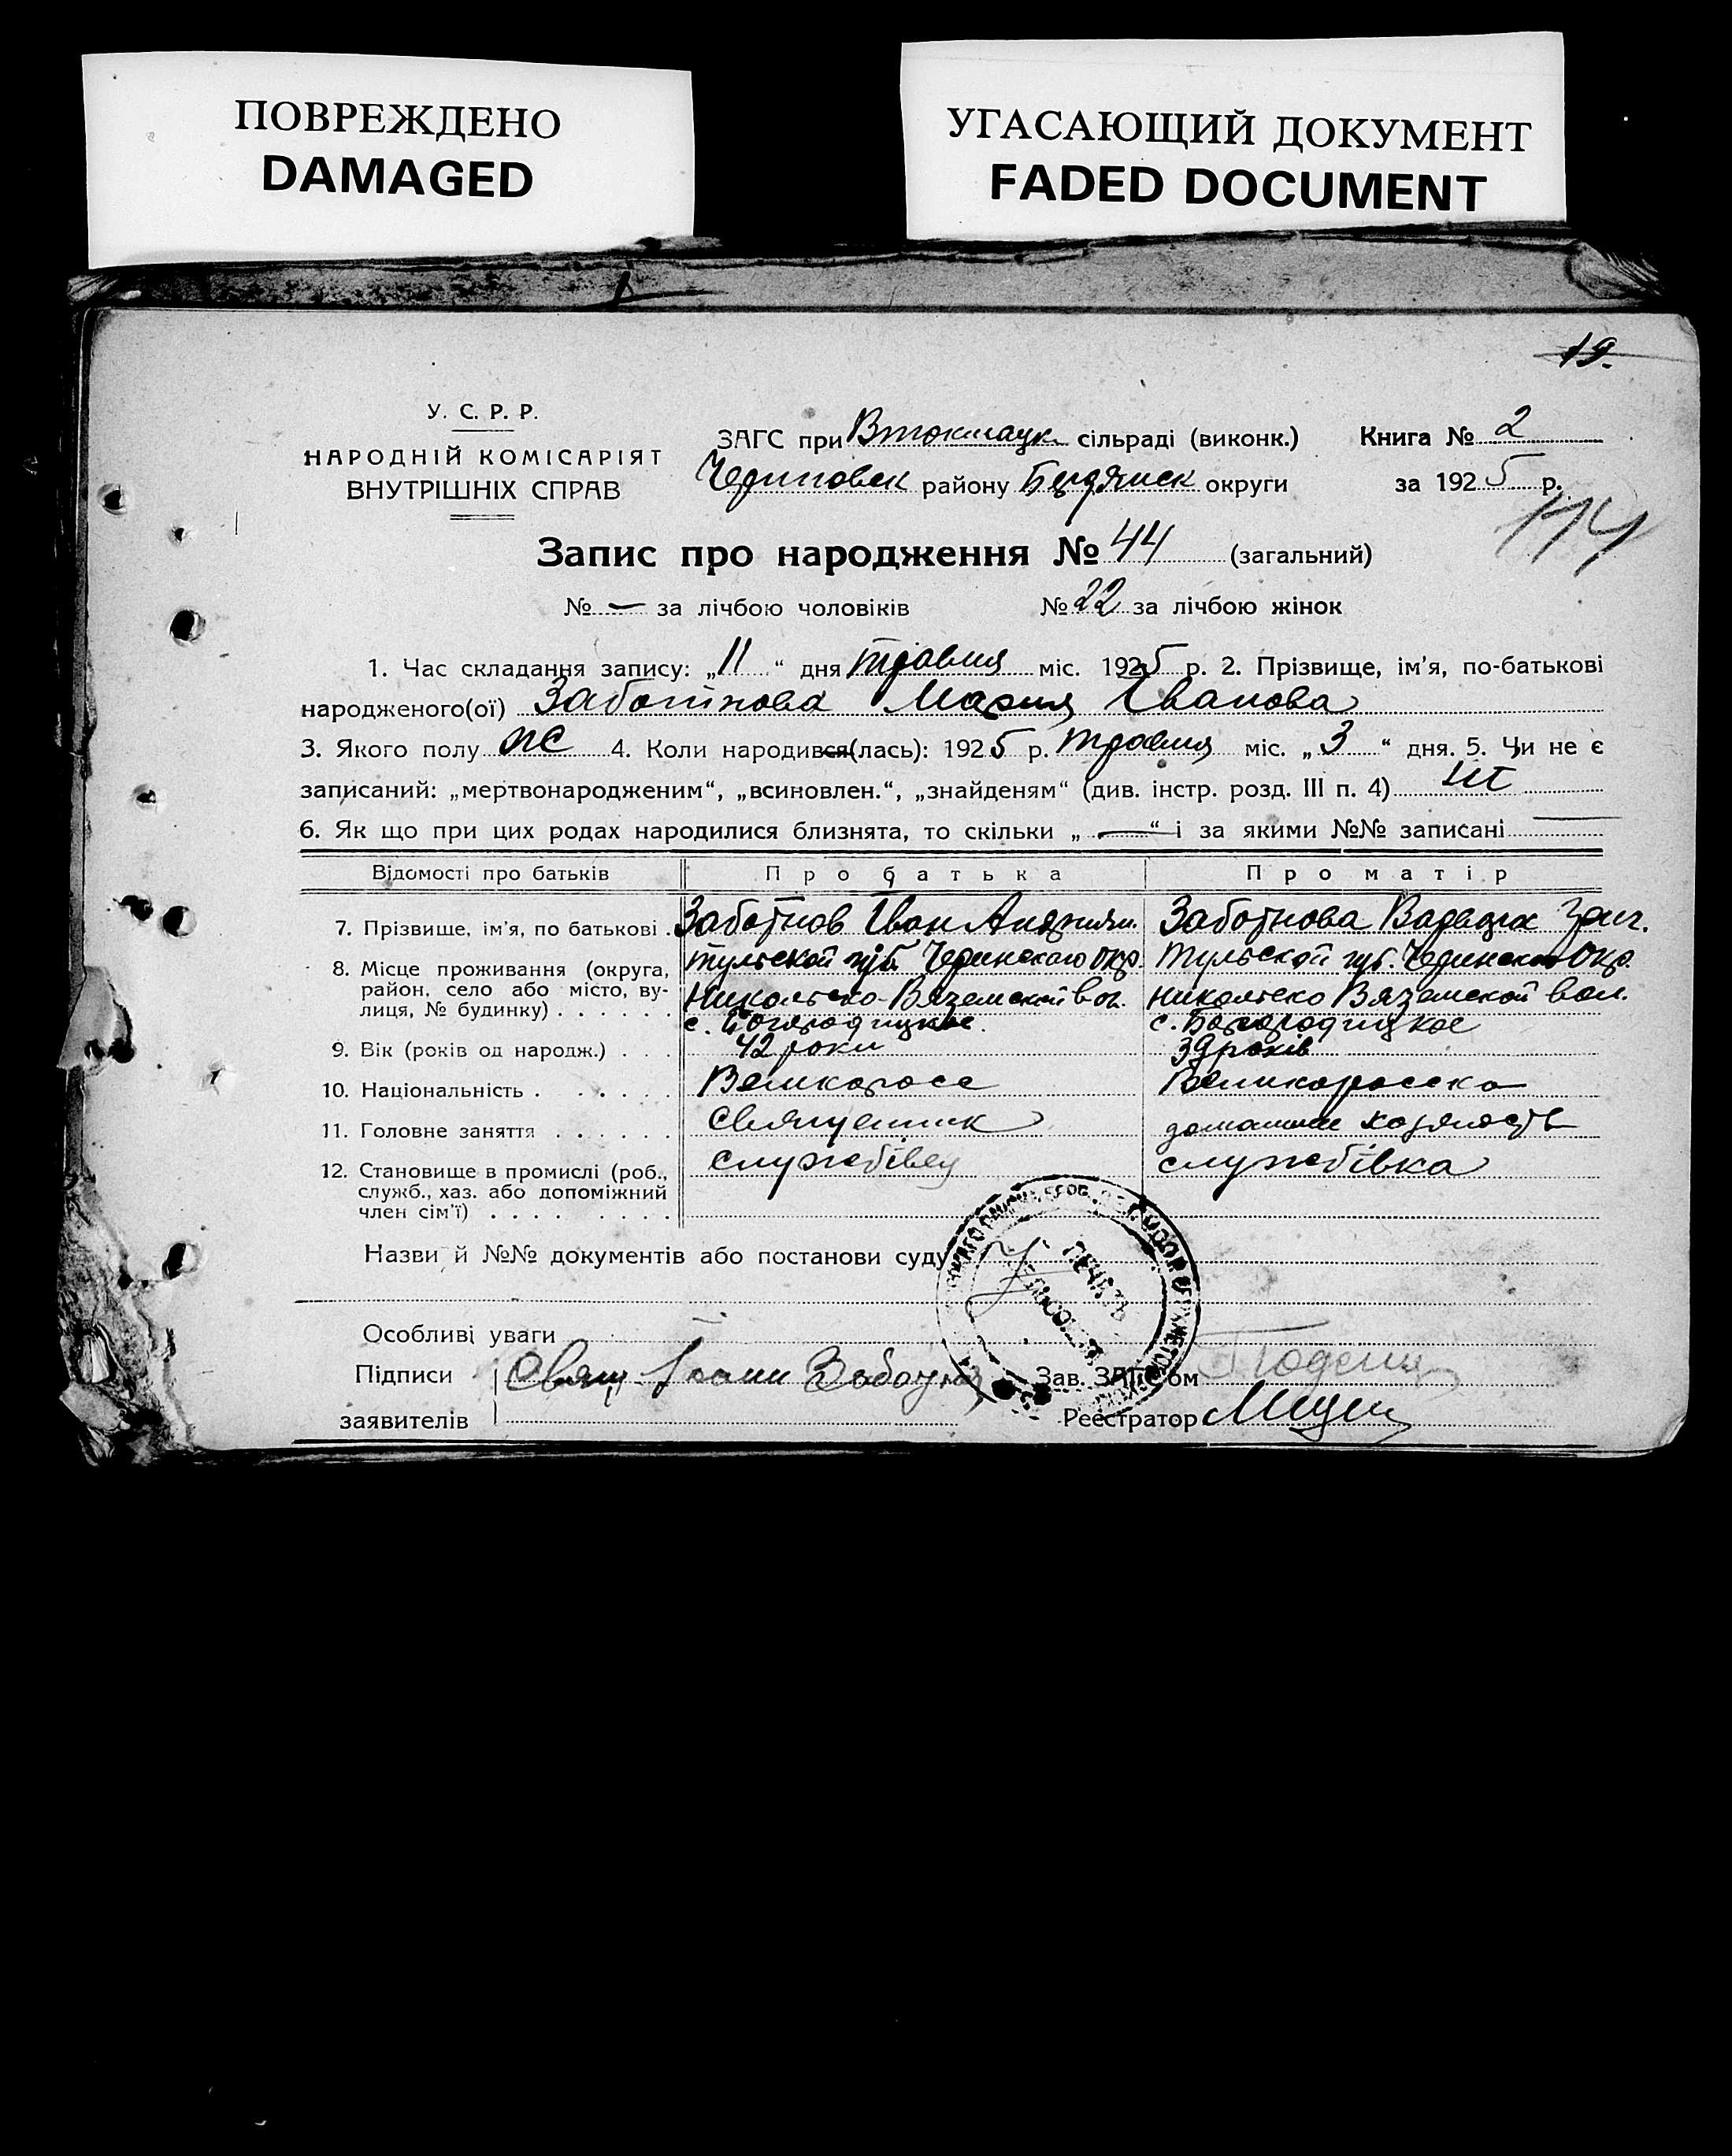 ПОВРЕЖДЕНО
DAMAGED
УГАСАЮЩИЙ ДОКУМЕНТ
FADED DOCUMENT
19.
У. С. Р. Р.
НАРОДНІЙ КОМІСАРІЯТ
ВНУТРІШНІХ СПРАВ
ЗАГС при Втокмацк сільраді (виконк.) Книга № 2
району Бердянск округи за 1925 р.
174
Запис про народження № 44 (загальний)
№ — за лічбою чоловіків № 22 за лічбою жінок
1. Час складання запису: „11“ дня травня міс. 1925 р. 2. Прізвище, ім'я, по-батькові
народженого(ої) Заботнова Мария Іванова
3. Якого полу ж 4. Коли народився(лась): 1925 р. травня міс. „3“ дня. 5. Чи не є
записаний: „мертвонародженим“, „всиновлен.“, „знайденям“ (див. інстр. розд. III п. 4) ні
6. Як що при цих родах народилися близнята, то скільки „—“ і за якими №№ записані —
Відомості про батьків Про батька Про матір
7. Прізвище, ім'я, по батькові . Заботнов Іван Заботнова Григ.
8. Місце проживання (округа, Тульской губ. Чернского окр. Тульской губ. Чернского окр.
район, село або місто, ву- Никольско-Вяземской вол. Никольско Вяземской вол.
лиця, № будинку) . . . . . . с. Богородицкое. с. Богородицкое
9. Вік (років од народж.) . . . 42 роки 39 років
10. Національність . . . . . . Великоросс Великоросска
11. Головне заняття . . . . . . Священник домашнє
12. Становище в промислі (роб., службівец службівка
служб., хаз. або допоміжний
член сім'ї) . . . . . . . . .
Назви й №№ документів або постанови суду
ПЕЧАТЬ
Особливі уваги
Підписи Свящ. Іоанн Заботнов Зав. ЗАГС'ом
заявителів Реєстратор